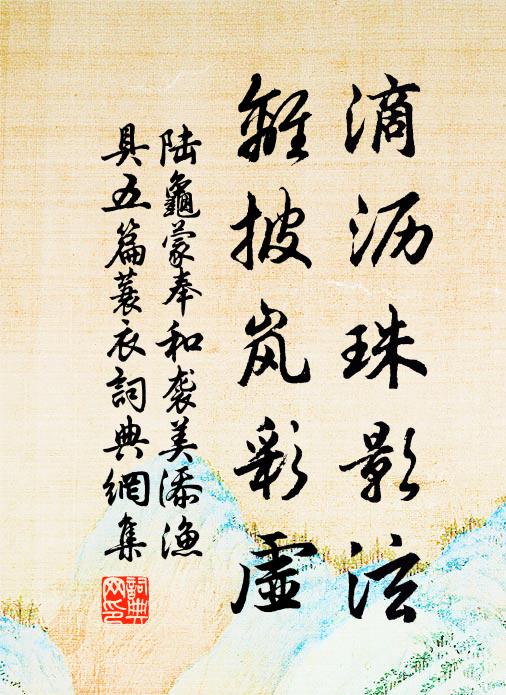 滴沥珠影泫
離披岚彩虚
陆龜蒙奉和袭美添渔
具五篇蓑衣詞典網集
詞典
网印